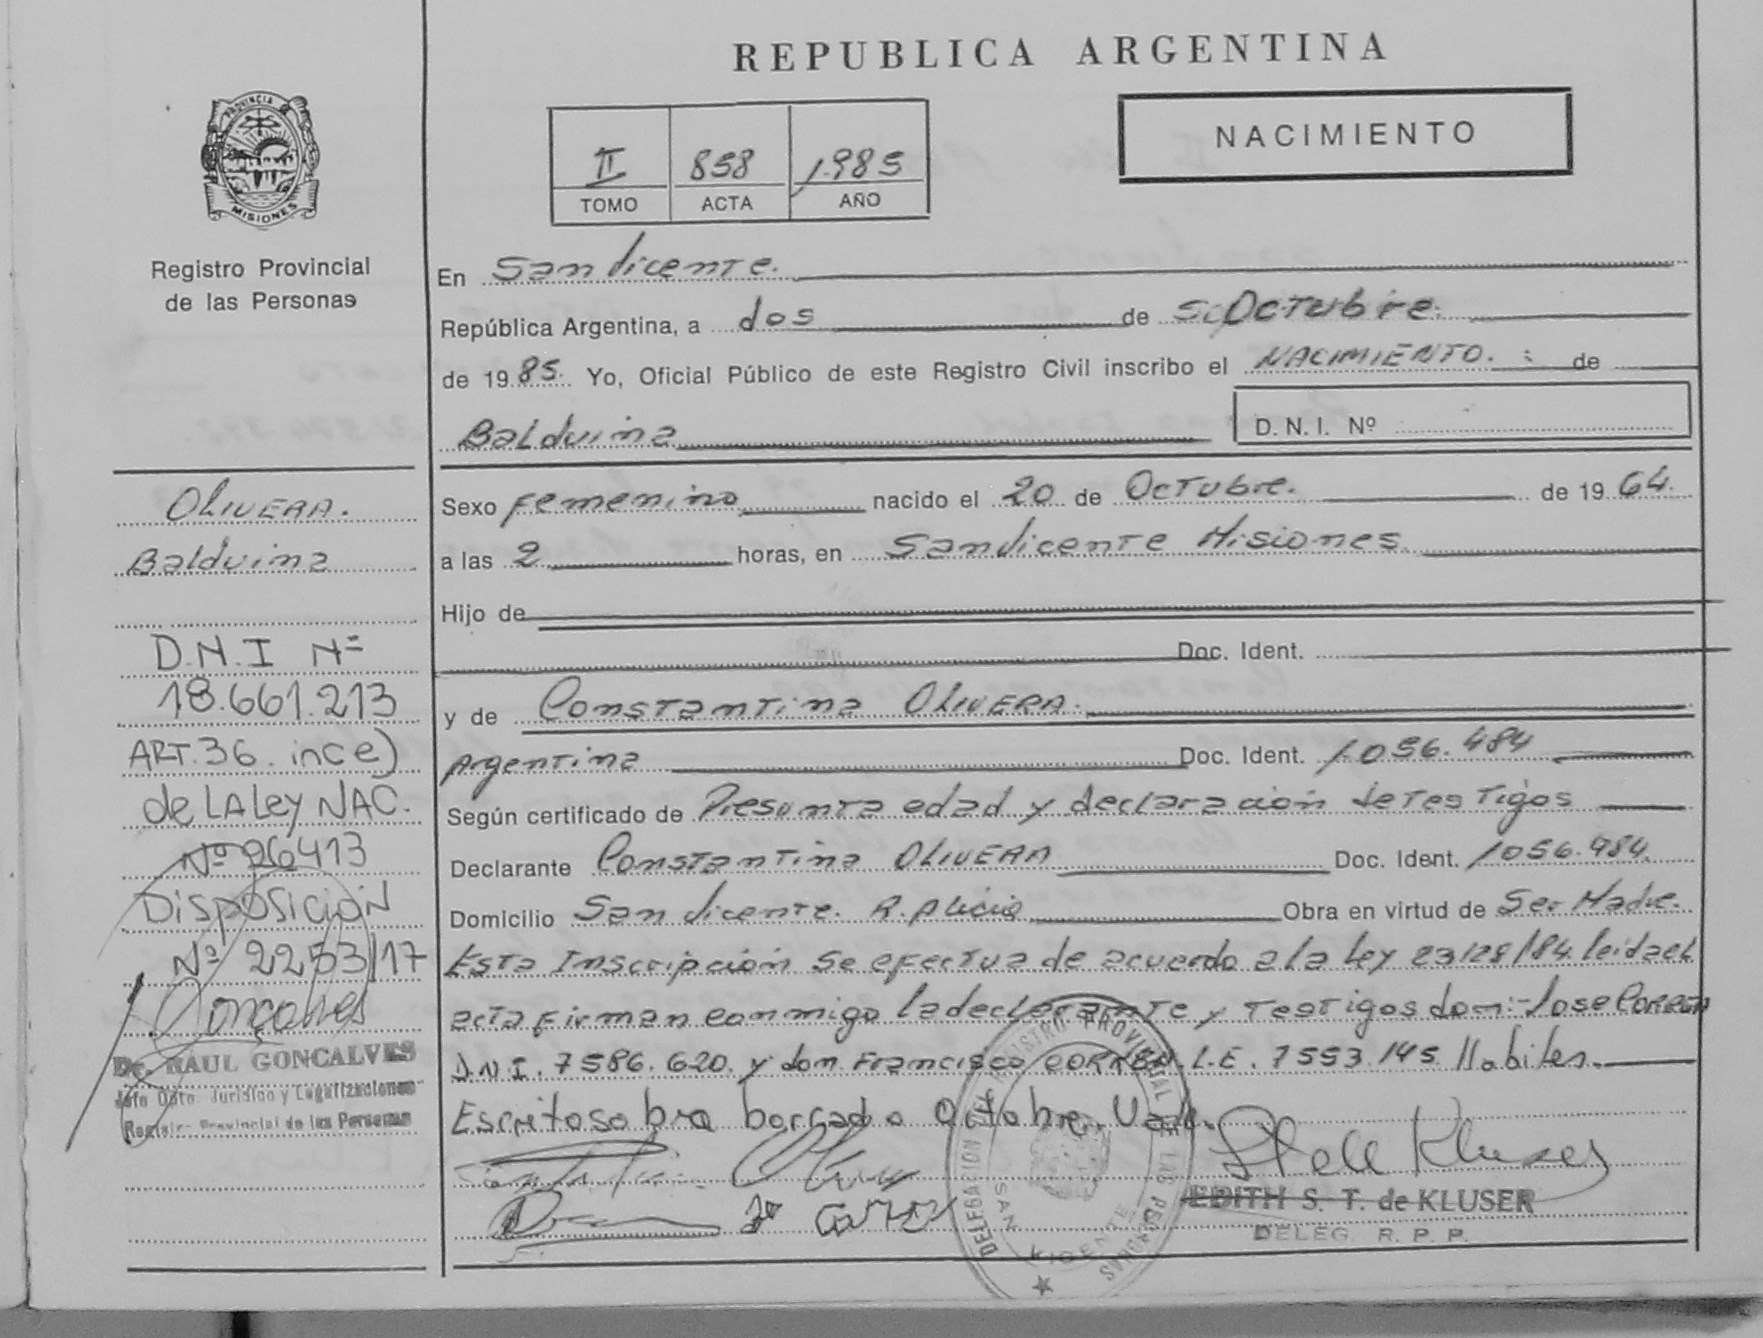 REPUBLICA ARGENTINA
PROVINCIA
MISIONES
Registro Provincial
de las Personas
II 858 1985
TOMO ACTA AÑO
NACIMIENTO
En San Vicente.
República Argentina, a dos de Octubre.
de 1985. Yo, Oficial Público de este Registro Civil inscribo el NACIMIENTO. de
Balduina
D. N. I. Nº
Sexo Femenino nacido el 20 de Octubre. de 1964.
a las 2 horas, en San Vicente Misiones.
Hijo de
Doc. Ident.
y de Constantina OLIVERA.
Argentina Doc. Ident. 1.056.484
Según certificado de Presunta edad y declaracion de Testigos
Declarante Constantina OLIVERA Doc. Ident. 1056.484.
Domicilio San Vicente. R. Alicia Obra en virtud de Ser Madre.
Esta Inscripción se efectua de acuerdo a la Ley 23128/84. leida el
acta firman conmigo la declarante y Testigos don:- Jose CORREA
D.N.I. 7586.620. y don Francisco CORREA. L.E. 7553.145. Habiles.
Escrito sobra borrado Octobre. Vale.
OLIVERA.
Balduina
D.N.I Nº
18.661.213
ART.36. inc e)
de LA Ley NAC.
Nº 26413
Disposición
Nº 2253/17
Goncalves
Dr. RAUL GONCALVES
Jefe Dpto. Jurídico y Legalizaciones
Registro Provincial de las Personas
DELEGACION DEL REGISTRO PROVINCIAL DE LAS PERSONAS
SAN VICENTE
EDITH S. T. de KLUSER
DELEG. R. P. P.